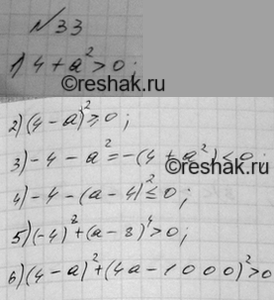 №33
1) 4 + a² > 0;
©reshak.ru
2) (4 - a)² ≥ 0;
3) -4 - a² = -(4 + a²) < 0;
4) -4 - (a - 4)² ≤ 0;
5) (-4)² + (a - 8)⁴ > 0;
6) (4 - a)² + (4a - 1000)² > 0
©reshak.ru